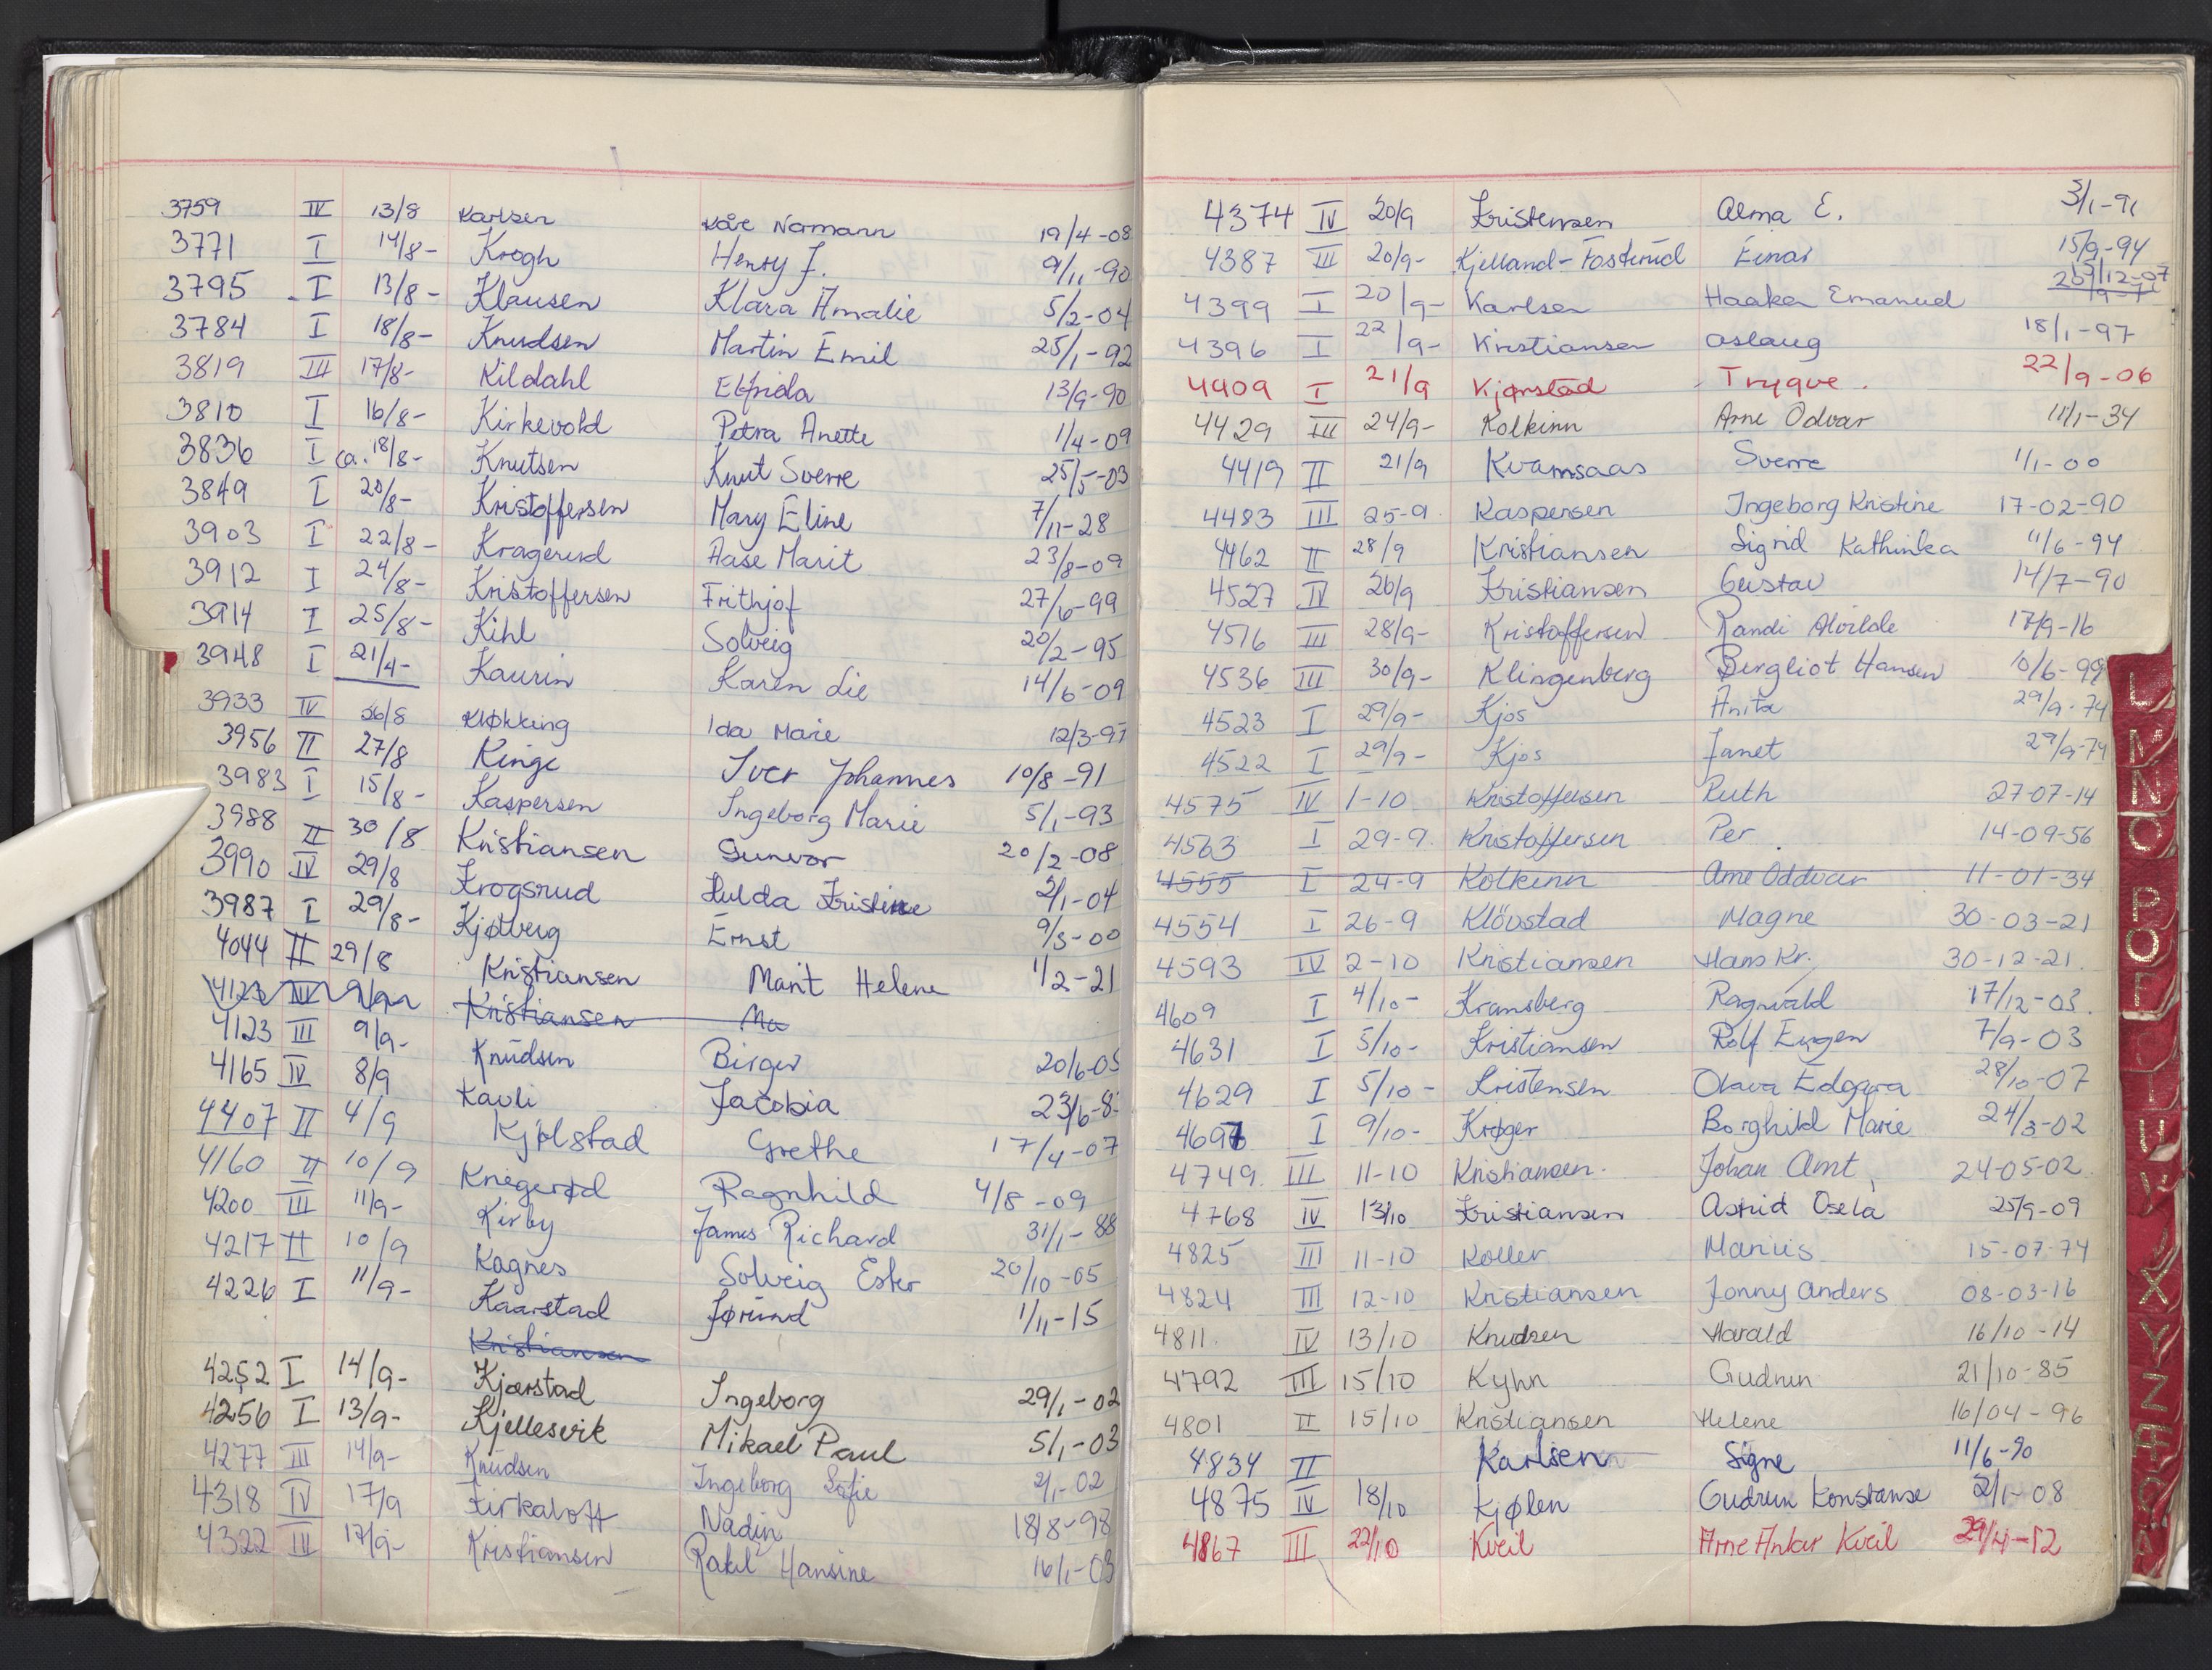 3759 IV 13/8 Karlsen Kåre Normann 19/4-08
3771 I 14/8- Krogh Henry J. 9/11-90
3795 I 13/8- Klausen Klara Amalie 5/2-04
3784 I 18/8- Knudsen Martin Emil 25/1-92
3819 III 17/8- Kildahl Elfrida 13/9-90
3810 I 16/8- Kirkevold Petra Anette 1/4-09
3836 I ca. 18/8- Knutsen Knut Sverre 25/5-03
3849 I 20/8- Kristoffersen Mary Eline 7/11-28
3903 I 22/8- Kragerud Aase Marit 23/8-09
3912 I 24/8- Kristoffersen Frithjof 27/6-99
3914 I 25/8- Kihl Solveig 20/2-95
3948 I 21/4- Kaurin Karen Lie 14/6-09
3933 IV 26/8 Kløkking Ida Marie 12/3-97
3956 II 27/8 Kinge Iver Johannes 10/8-91
3983 I 15/8- Kaspersen Ingeborg Marie 5/1-93
3988 II 30/8 Kristiansen Gunvor 20/2-08
3990 IV 29/8 Krogsrud Hulda Kristine 2/1-04
3987 I 29/8- Kjølberg Ernst 9/3-00
4044 II 29/8 Kristiansen Marit Helene 1/2-21
4123 IV 9/9 Kristiansen Ma
4123 III 9/9- Knudsen Birger 20/6-05
4165 IV 8/9 Kavli Jacobia 23/6-8
4407 II 4/9 Kjølstad Grethe 17/4-07
4160 II 10/9 Kriegerød Ragnhild 4/8-09
4200 III 11/9- Kirby James Richard 31/1-88
4217 II 10/9 Kagnes Solveig Ester 20/10-05
4226 I 11/9- Kaarstad Jørund 1/11-15
Kristiansen
4252 I 14/9- Kjærstad Ingeborg 29/1-02
4256 I 13/9- Kjellesvik Mikael Paul 5/1-03
4277 III 14/9- Knudsen Ingeborg Sofie 2/1-02
4318 IV 17/9 Kirkaloff Nadin 18/8-98
4322 III 17/9- Kristiansen Rakel Hansine 16/1-03
4374 IV 20/9 Kristensen Alma E. 3/1-91
4387 III 20/9- Kjelland-Fosterud Einar 15/9-94
4399 I 20/9- Karlsen Haakon Emanuel 19/12-07
4396 I 22/9- Kristiansen Aslaug 18/1-97
4409 I 21/9 Kjørstad Trygve. 22/9-06
4429 III 24/9- Kolkinn Arne Odvar 11/1-34
4419 II 21/9 Kvamsaas Sverre 1/1-00
4483 III 25-9 Kaspersen Ingeborg Kristine 17-02-90
4462 II 28/9 Kristiansen Sigrid Kathinka 11/6-94
4527 IV 26/9 Kristiansen Gustav 14/7-90
4516 III 28/9- Kristoffersen Randi Alvilde 17/9-16
4536 III 30/9- Klingenberg Bergliot Hansen 10/6-99
4523 I 29/9- Kjos Anita 29/9-74
4522 I 29/9- Kjos Janet 29/9-74
4575 IV 1-10 Kristoffersen Ruth 27-07-14
4563 I 29-9. Kristoffersen Per 14-09-56
4555 I 24-9 Kolkinn Arne Oddvar 11-01-34
4554 I 26-9 Klövstad Magne 30-03-21
4593 IV 2-10 Kristiansen Hans Kr. 30-12-21.
4609 I 4/10- Kramsberg Ragnvald 17/12-03.
4631 I 5/10- Kristiansen Rolf Eugen 7/9-03
4629 I 5/10- Kristensen Olava Edgara 28/10-07
4697 I 9/10- Krøger Borghild Marie 24/3-02
4749. III 11-10 Kristiansen. Johan Arnt 24-05-02
4768 IV 13/10 Kristiansen Astrid Osela 25/9-09
4825 III 11-10 Koller Marius 15-07-74
4824 III 12-10 Kristiansen Jonny Anders 08-03-16
4811. IV 13/10 Knudsen Harald 16/10-14
4792 III 15/10 Kyhn Gudrun 21/10-85
4801 II 15/10 Kristiansen Helene 16/04-96
4834 II Karlsen Signe 11/6-90
4875 IV 18/10 Kjølen Gudrun Konstanse 2/1-08
4867 III 22/10 Kveil Arne Ankar Kveil 29/4-12
L
M
N
O
P
Q
U
V
X
Y
Z
Æ
Ø